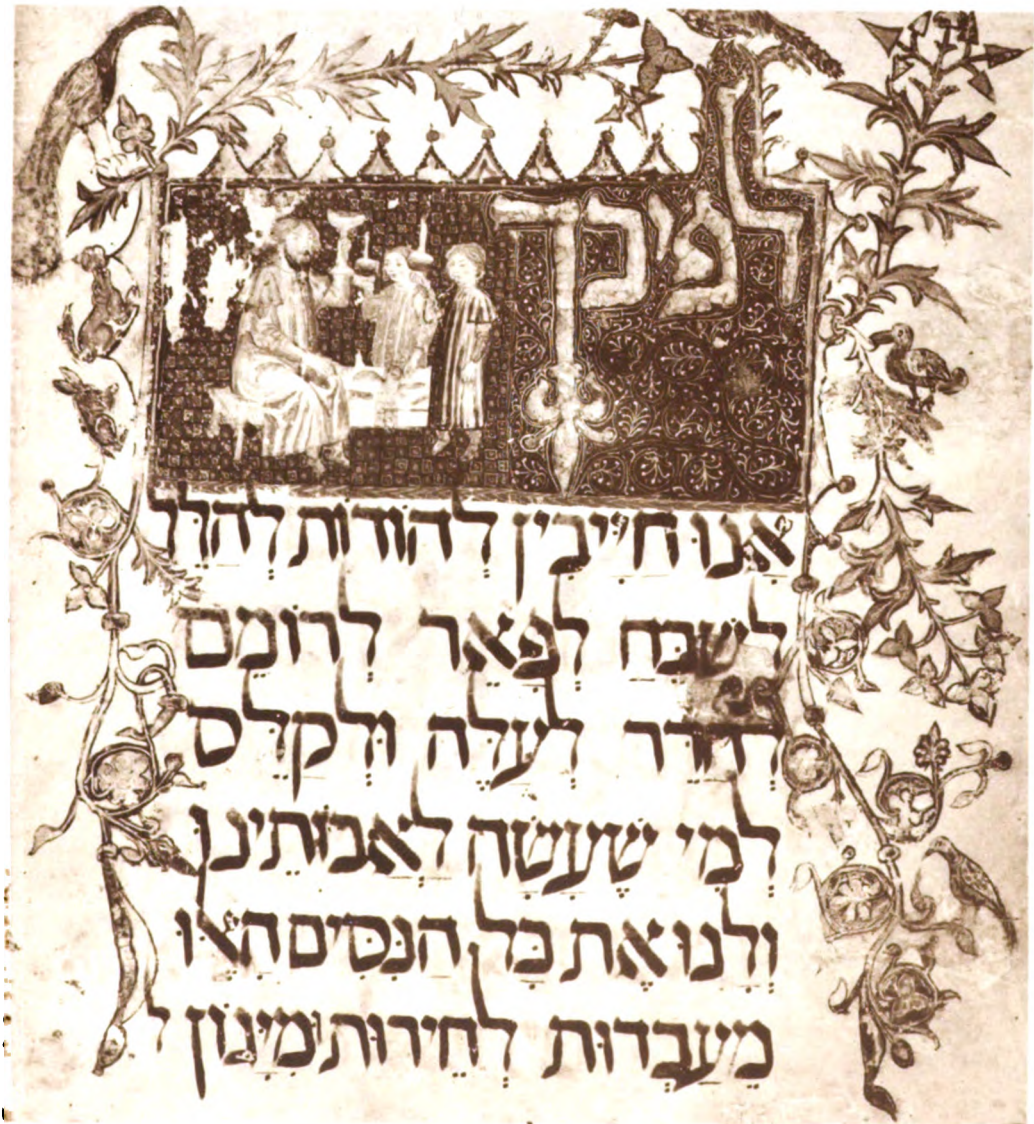 לפיכך
אנו חייבין להודות להלל
לשבח לפאר לרומם
להדר לעלה ולקלס
למי שעשה לאבותינו
ולנו את כל הנסים האלו
מעבדות לחירות ומיגון ל